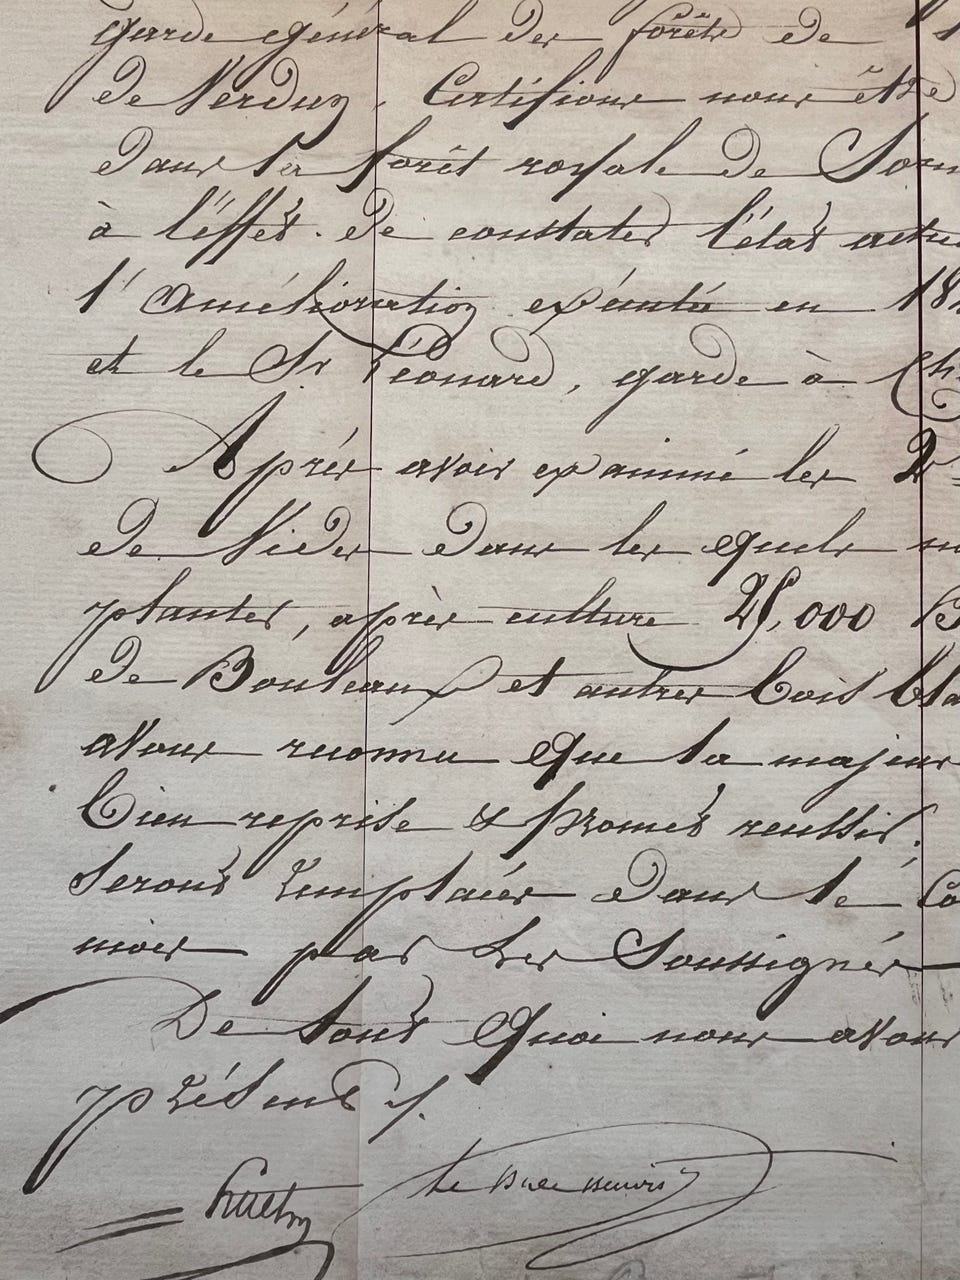 garde général des forêts de
de Verdun, Certifions nous être
dans la forêt royale de Som
à l'éffet de constater l'état actu
l'amélioration exécutée en 18
et le Sr Léonard, garde à Ch
Après avoir examiné les 2
de Vides dans les quels
planter, après culture 25,000 B
de Bouleaux et autres bois bla
avons reconnu que la majeur
bien reprise & promet réussir,
seront remplacées dans le Co
mois par les Soussignés
De tout quoi nous avons
présent